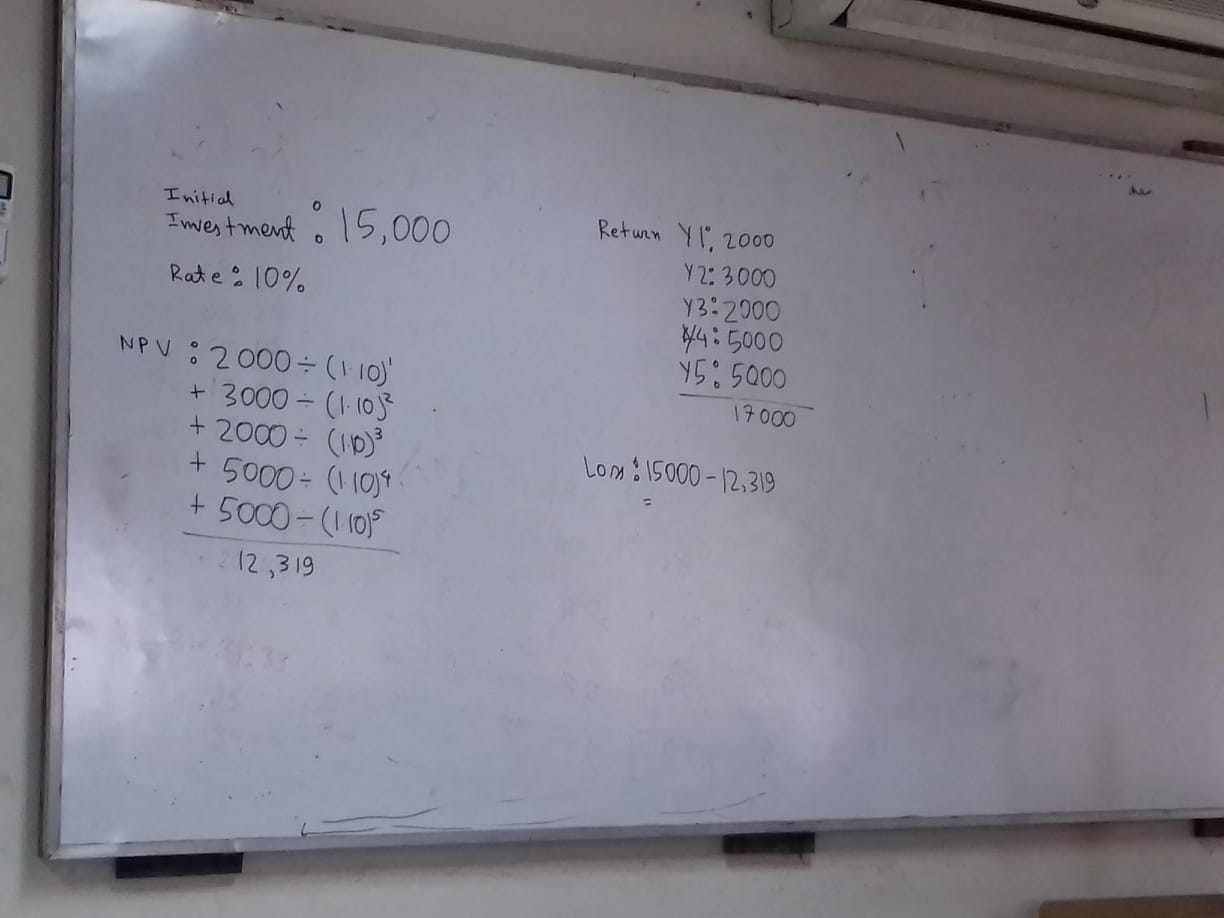 Initial
Investment : 15,000
Rate : 10%
NPV : 2000 ÷ (1.10)¹
+ 3000 ÷ (1.10)²
+ 2000 ÷ (1.10)³
+ 5000 ÷ (1.10)⁴
+ 5000 − (1.10)⁵
12,319
Return Y1: 2000
Y2: 3000
Y3: 2000
Y4: 5000
Y5: 5000
17000
Loss : 15000 - 12,319
=